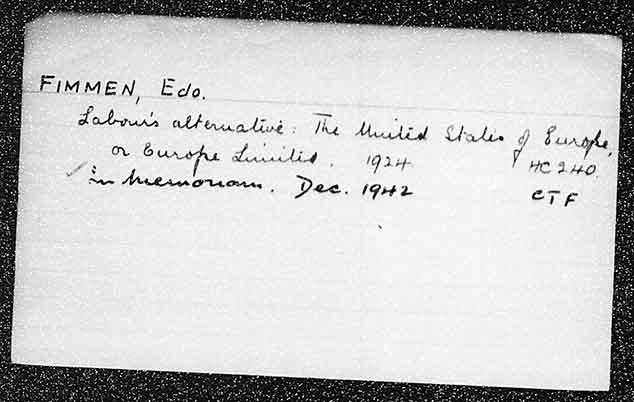 FIMMEN, Edo.
Labour's alternative: The United States of Europe,
or Europe Limited. 1924 HC 240.
✓ in memoriam. Dec. 1942 CTF